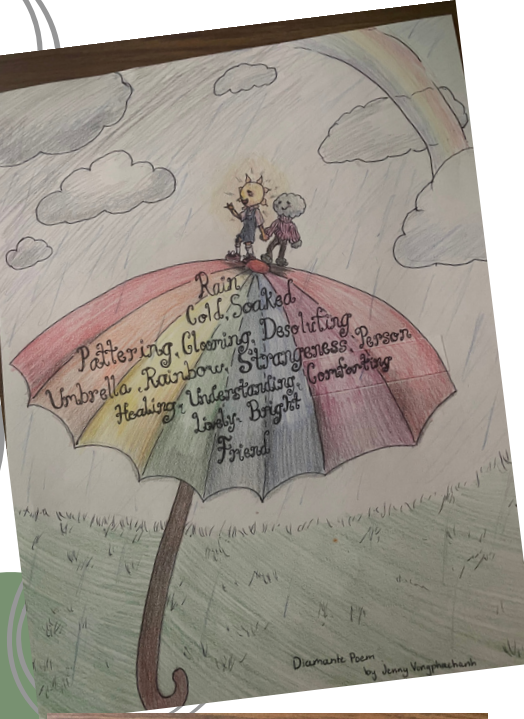 Rain
Cold, Soaked
Pattering, Glooming, Desolating
Umbrella, Rainbow, Strangeness, Person
Healing, Understanding, Comforting
Lively, Bright
Friend
Diamante Poem
by Jenny Vongphachanh